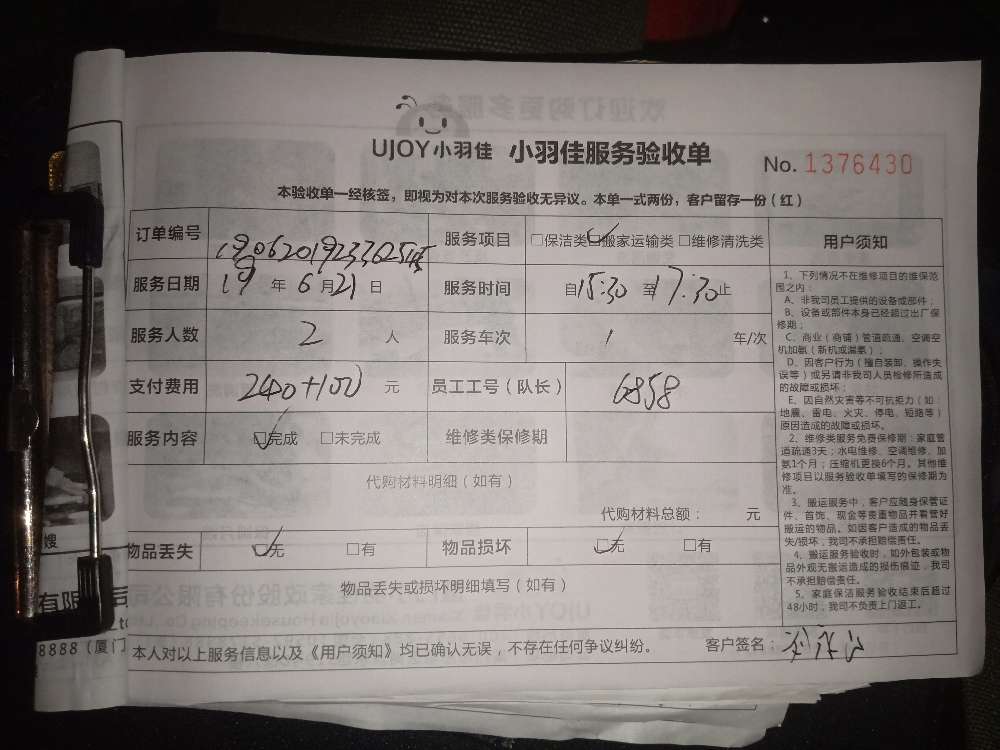 UJOY小羽佳 小羽佳服务验收单
No. 1376430
本验收单一经核签，即视为对本次服务验收无异议。本单一式两份，客户留存一份（红）
订单编号
服务项目 □保洁类 □搬家运输类 □维修清洗类
用户须知
服务日期 19年6月21日
服务时间 自15:30至17:30止
服务人数 2人
服务车次 1 车/次
支付费用 240+100元
员工工号（队长） 6858
服务内容 □完成 □未完成
维修类保修期
代购材料明细（如有）
代购材料总额： 元
物品丢失 □无 □有
物品损坏 □无 □有
物品丢失或损坏明细填写（如有）
本人对以上服务信息以及《用户须知》均已确认无误，不存在任何争议纠纷。
客户签名：
1、下列情况不在维修项目的维保范
围之内：
A、非我司员工提供的设备或部件；
B、设备或部件本身已经超过出厂保
修期；
C、商业（商铺）管道疏通、空调空
机加氨（新机或漏氨）；
D、因客户行为（擅自装卸、操作失
误等）或另请非我司人员检修所造成
的故障或损坏；
E、因自然灾害等不可抗拒力（如：
地震、雷电、火灾、停电、短路等）
原因造成的故障或损坏。
2、维修类服务免费保修期：家庭管
道疏通3天；水电维修、空调维修、加
氨1个月；压缩机更换6个月。其他维
修项目以服务验收单填写的保修期为
准。
3、搬运服务中，客户应随身保管证
件、首饰、现金等贵重物品并看管好
搬运的物品。如因客户造成的物品丢
失/损坏，我司不承担赔偿责任。
4、搬运服务验收时，如外包装或物
品外观无搬运造成的损伤痕迹，我司
不承担赔偿责任。
5、家庭保洁服务验收结束后超过
48小时，我司不负责上门返工。
嫂
有限 司
8888（厦门